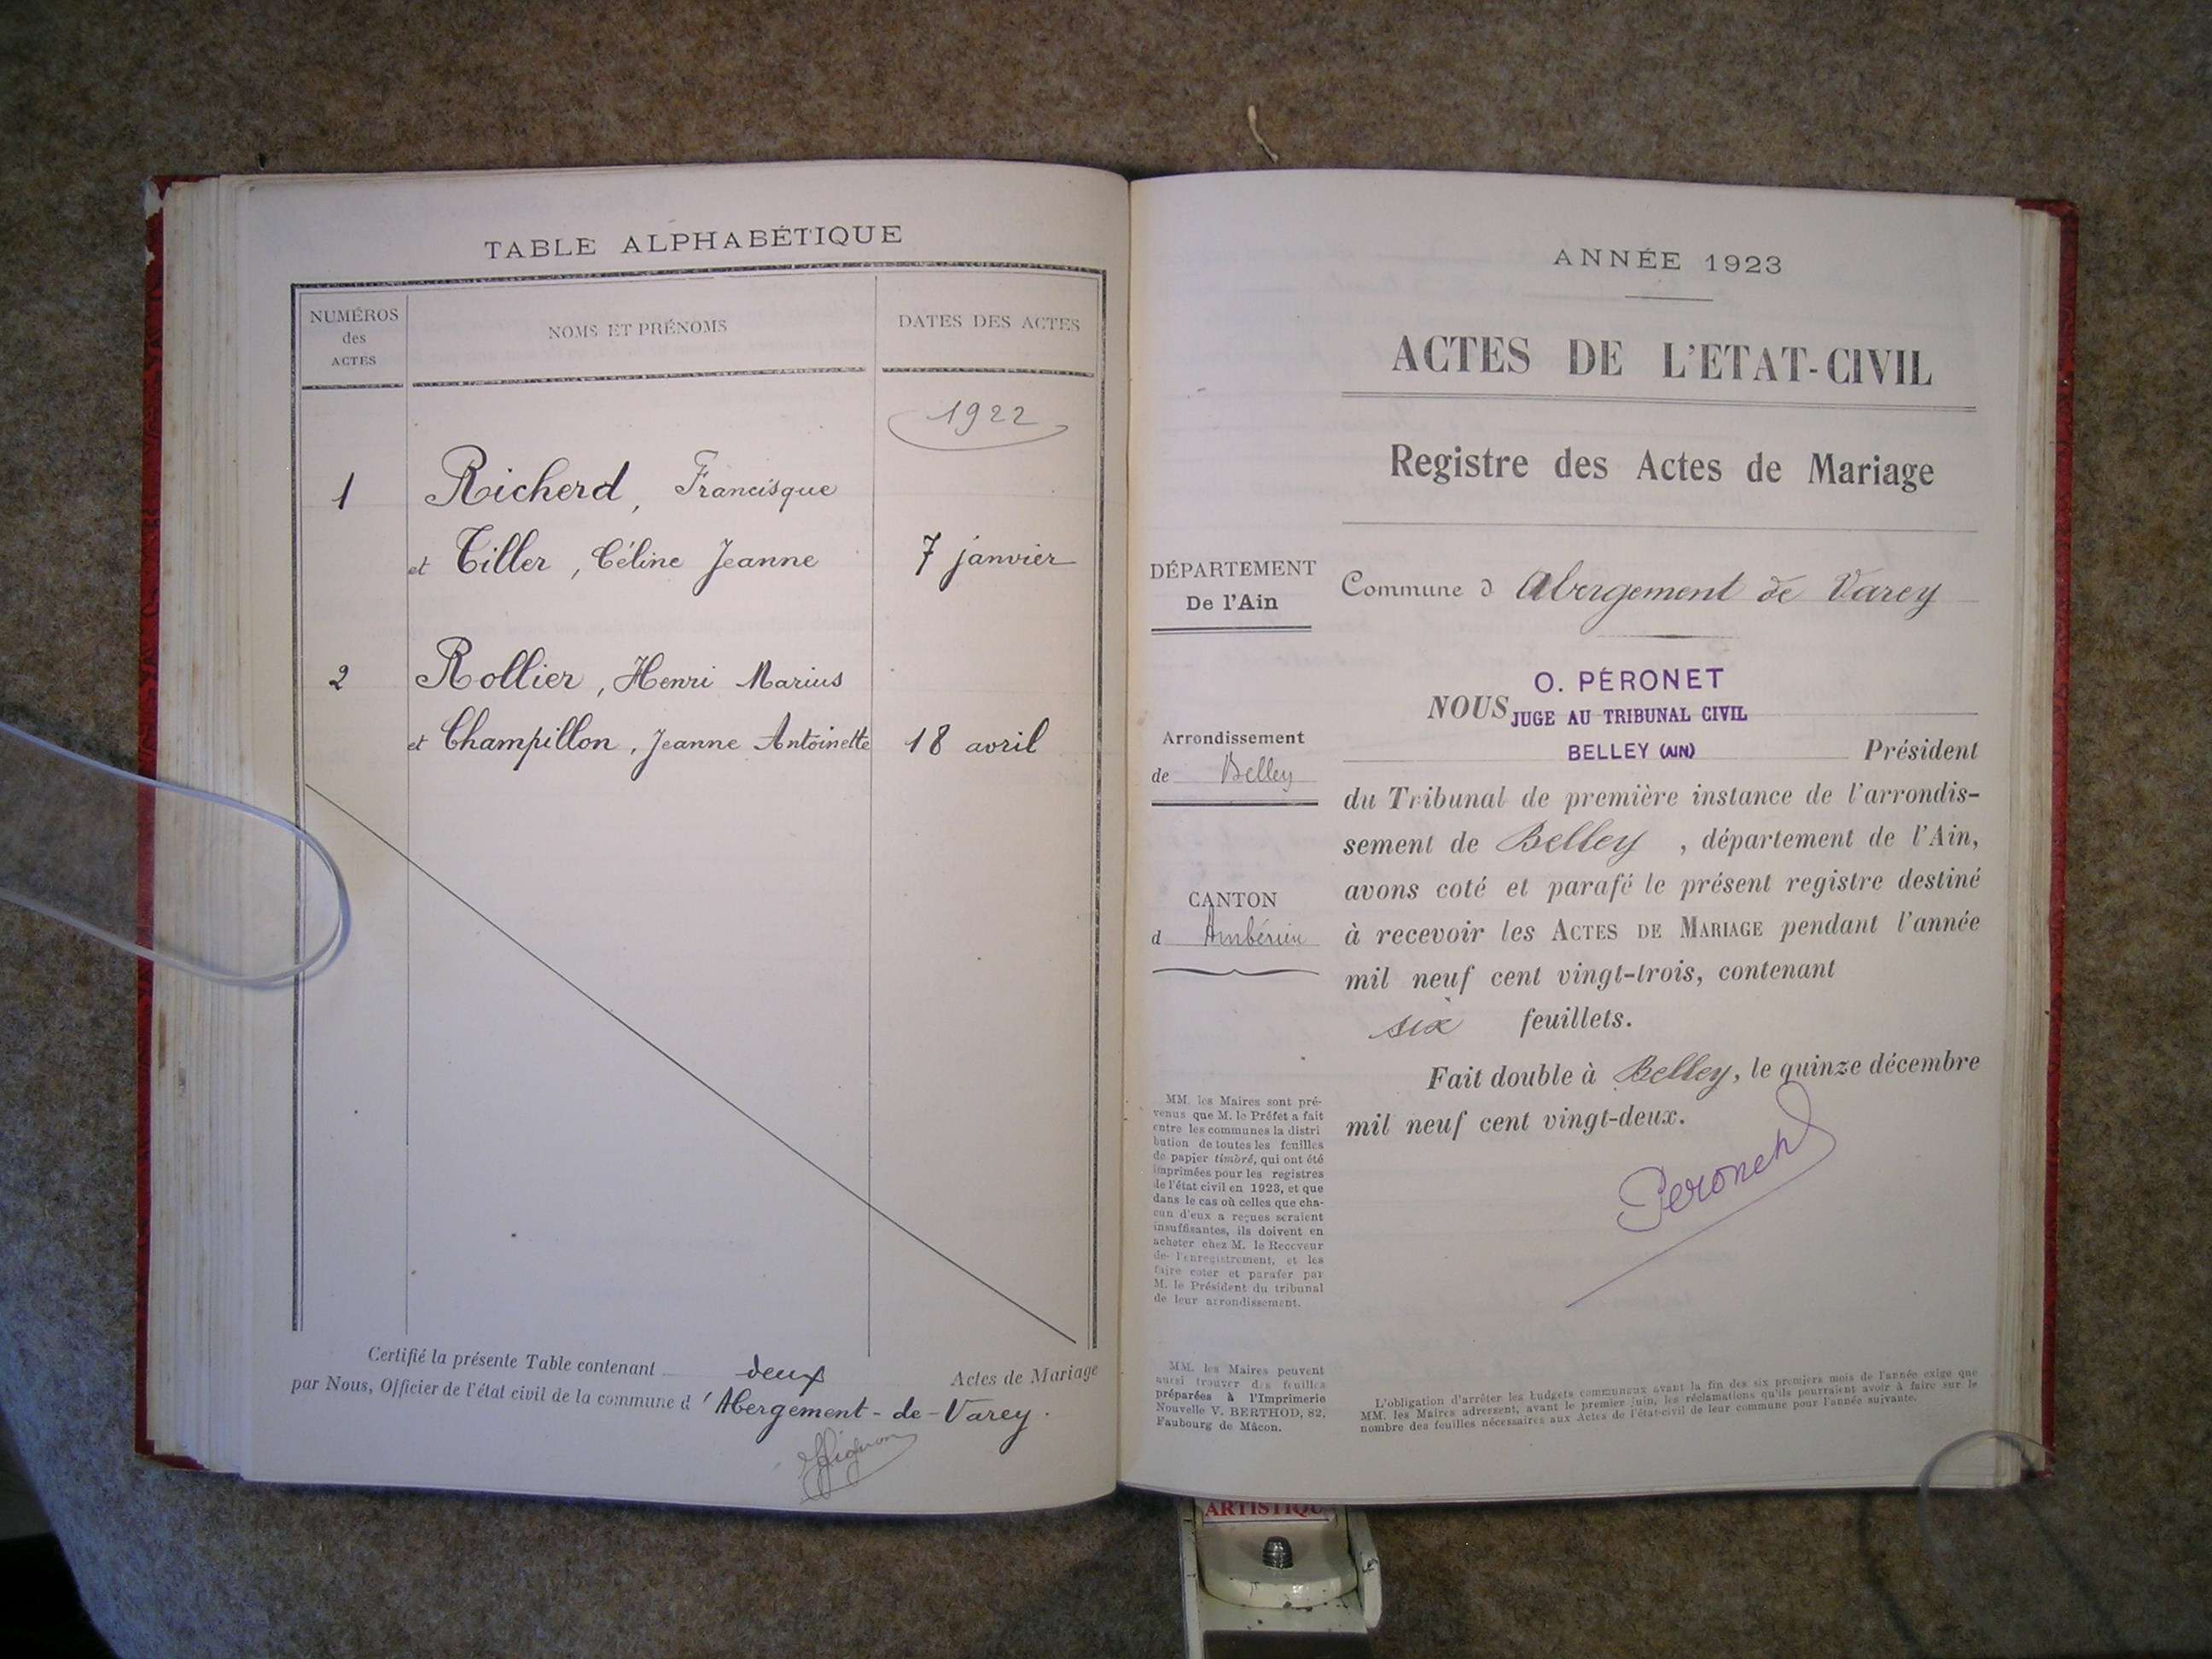 TABLE ALPHABÉTIQUE
NUMÉROS
des
ACTES
NOMS ET PRÉNOMS
DATES DES ACTES
1922
1 Richerd, Francisque
et Tiller, Céline Jeanne 7 janvier
2 Rollier, Henri Marius
et Champillon, Jeanne Antoinette 18 avril
Certifié la présente Table contenant deux Actes de Mariage
par Nous, Officier de l'état civil de la commune d'Abergement-de-Varey.
ANNÉE 1923
ACTES DE L'ETAT-CIVIL
Registre des Actes de Mariage
DÉPARTEMENT
De l'Ain
Arrondissement
de Belley
CANTON
d Ambérieu
MM. les Maires sont pré-
venus que M. le Préfet a fait
entre les communes la distri
bution de toutes les feuilles
de papier timbré, qui ont été
imprimées pour les registres
de l'état civil en 1923, et que
dans le cas où celles que cha-
cun d'eux a reçues seraient
insuffisantes, ils doivent en
acheter chez M. le Receveur
de l'enregistrement, et les
faire coter et parafer par
M. le Président du tribunal
de leur arrondissement.
MM. les Maires peuvent
aussi trouver des feuilles
préparées à l'Imprimerie
Nouvelle V. BERTHOD, 82,
Faubourg de Mâcon.
Commune d Abergement de Varey
O. PÉRONET
NOUS JUGE AU TRIBUNAL CIVIL
BELLEY (AIN) Président
du Tribunal de première instance de l'arrondis-
sement de Belley, département de l'Ain,
avons coté et parafé le présent registre destiné
à recevoir les ACTES DE MARIAGE pendant l'année
mil neuf cent vingt-trois, contenant
six feuillets.
Fait double à Belley, le quinze décembre
mil neuf cent vingt-deux.
Péronet
L'obligation d'arrêter les budgets communaux avant la fin des six premiers mois de l'année exige que
MM. les Maires adressent, avant le premier juin, les réclamations qu'ils pourraient avoir à faire sur le
nombre des feuilles nécessaires aux Actes de l'état-civil de leur commune pour l'année suivante.
ARTISTIQU